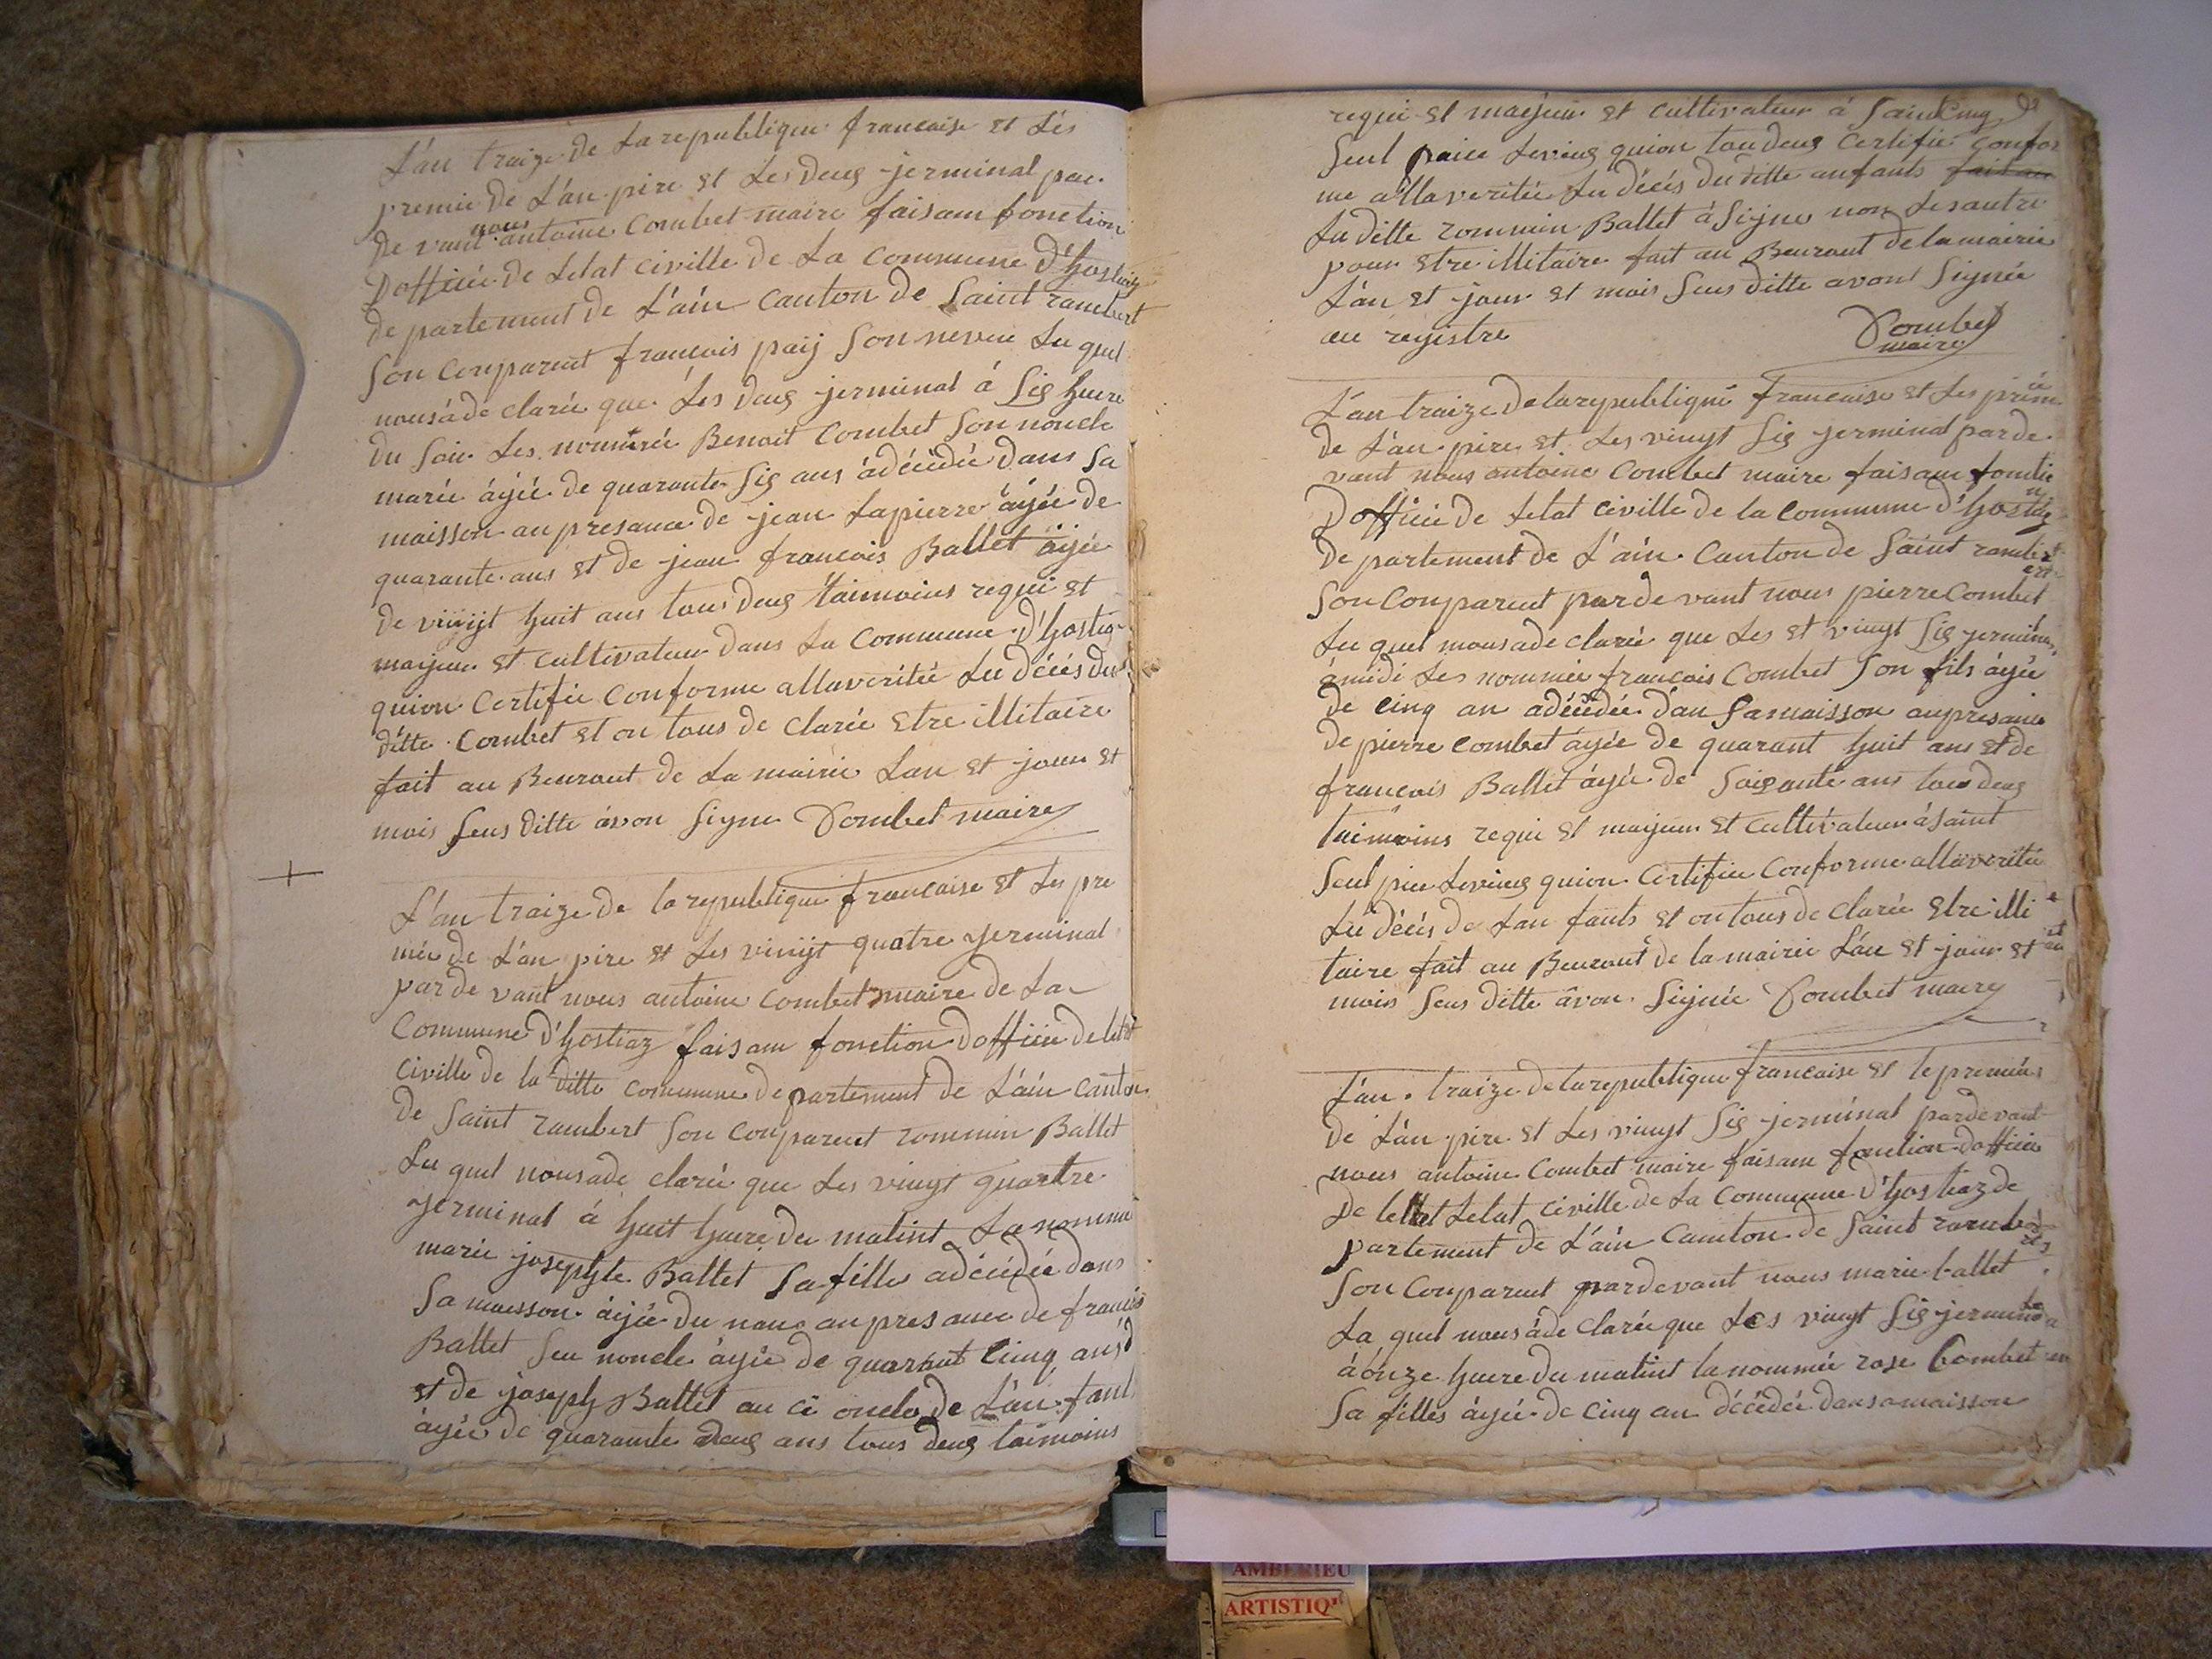 L'an traize de La republique francaise et Lés
premié de L'an pire et Les deus jerminal par
de vant nous antoine Combet maire faisam fonction
Dofficié de Letat civille de La Commune d'hostiaz
de partement de L'ain Canton de Saint rambert
Son Conparent francois paij Son neveu Lu quel
nousáde clarée que Lés deus jerminal á Sis huere
du Soir Les nommée Benoit Combet Son noncle
marié ájée de quarante Sis ans ádécédée dans Sa
maisson an presance de jean Lapierre ájée de
quarante ans et de jean francois Ballet ájée
de vinjt huit ans tous deus taimoins requi et
majeur et cultivateur dans La Commune d'hostiaz
quion Certifié Conforme allaveritée Lu décés du
ditte Combet et on tous de clarée etre illitaire
fait au Beuraut de La mairie Lan et jour et
mois Seus ditte ávon Signe Combet maire
L'an traize de la republique francaise et Les pre
mié de L'an pire et Les vinjt quatre jerminal
par de vant nous antoine Combet maire de La
Commune d'hostiaz faisam fonction Dofficié de letat
Civille de la ditte Commune de partement de L'ain Canton
de Saint rambert Son Conparent rommin Ballet
Lu quel nousade clarée que Les vingt quartre
jerminal á huit huere du matint La nomme
marie josephte Ballet Sa fille adécédée dans
Sa maisson ájée du nans an presance de francois
Ballet Seu noncle ájée de quarant Cinq ans
et de joseph Ballet au ci oncle de L'an fant
ájée de quarante deus ans tous deus taimoins
requi et majeur et cultivateur á Saint
Seul paice Leving quion tou deus Certifié Confor
me állaveritée Lu décés du ditte anfants fait au
Lu ditte rommin Ballet á Signe non Lesautre
pour etre illitaire fait au Beuraut de la mairie
L'an et jour et mois Seus ditte avont Signée
au rejistre
Combet
maire
L'an traize de la republiqué francaise et Les prem
ié
de L'an pire et Les vingt Sis jerminal par de
vant nous antoine Combet maire faisam fontio
n
Dofficié de Letat civille de la Commune d'hostiaz
de partement de L'ain Canton de Saint ramb
ert
Son Conparent par de vant nous pierre Combet
Lu quel nousade clarée que Les et vingt Sis jerminal
ámidi Les nommée francois Combet Son fils ájée
de Cinq an adécédée dan Samaisson anpresance
de pierre Combet ájée de quarant huit ans et de
francois Ballet ájée de Soisante ans tou deus
taimoins requi et majeur et cultivateur ásaint
Seul pice Leving quion Certifiée Conforme allaveritée
Lu décés de Lan fants et on tous de clarée etre illi
taire fait au Beuraut de la mairie L'an et jour et
mois Seus ditte ávon Signée Combet maire
L'an traize de la republique francaise et le premiér
de L'an pire et Les vingt Sis jerminal par de vant
nous antoine Combet maire faisam fonction Dofficié
de letet Letat civille de La Commune d'hostiaz de
partement de L'ain Camton de Saint ramber
Son Conparent par de vant nous marie ballet
La quel nousáde clarée que Les vingt Sis jerminal
áonze huere du matint la nommée rose Combet
Sa filles ájée de Cinq an décédée dans amaisson
AMBERIEU
ARTISTIQ